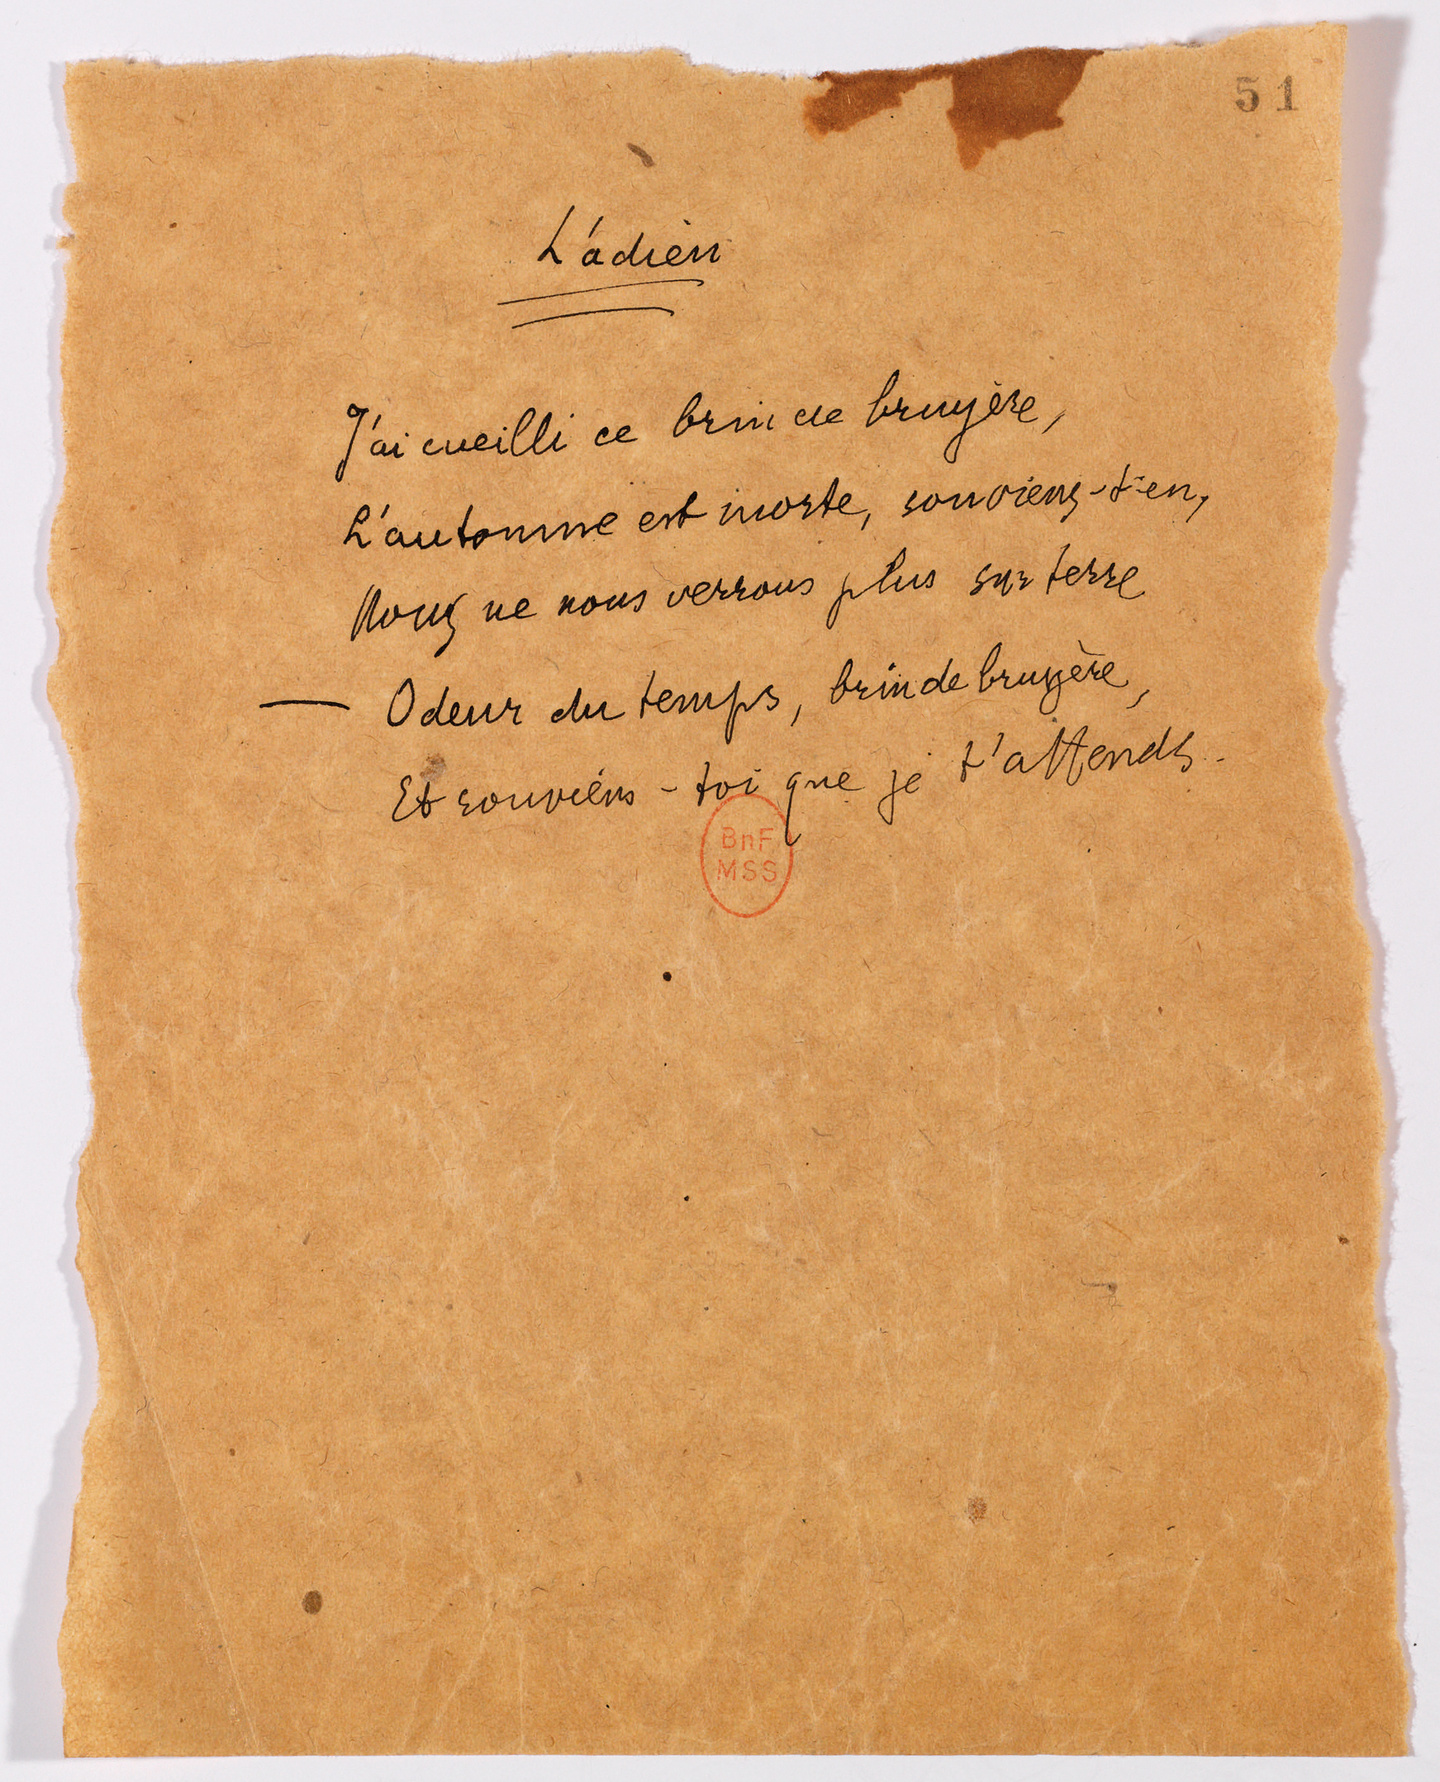 51
L'adieu
J'ai cueilli ce brin de bruyère,
L'automne est morte, souviens-t'en,
Nous ne nous verrons plus sur terre
— Odeur du temps, brin de bruyère,
Et souviens-toi que je t'attends.
BnF
MSS